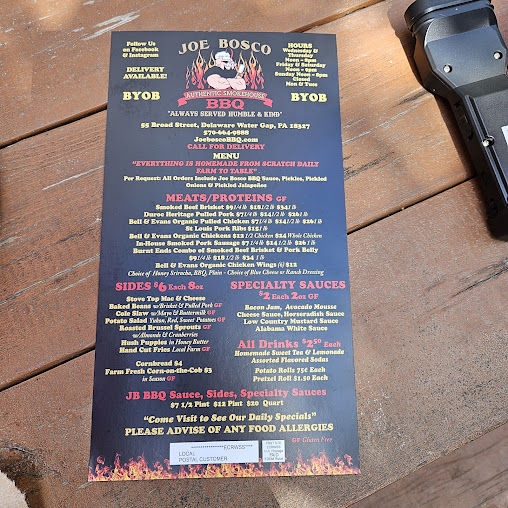 Follow Us
on Facebook
& Instagram
DELIVERY
AVAILABLE!
BYOB
JOE BOSCO
AUTHENTIC SMOKEHOUSE
BBQ
"ALWAYS SERVED HUMBLE & KIND"
HOURS
Wednesday &
Thursday
Noon - 8pm
Friday & Saturday
Noon - 9pm
Sunday Noon - 8pm
Closed
Mon & Tues
BYOB
55 Broad Street, Delaware Water Gap, PA 18327
570-664-9888
JoeboscoBBQ.com
CALL FOR DELIVERY
MENU
"EVERYTHING IS HOMEMADE FROM SCRATCH DAILY
FARM TO TABLE"
Per Request: All Orders Include Joe Bosco BBQ Sauce, Pickles, Pickled
Onions & Pickled Jalapeños
MEATS/PROTEINS GF
Smoked Beef Brisket $9 1/4 lb $18 1/2 lb $34 1 lb
Duroc Heritage Pulled Pork $7 1/4 lb $14 1/2 lb $26 1 lb
Bell & Evans Organic Pulled Chicken $7 1/4 lb $14 1/2 lb $26 1 lb
St Louis Pork Ribs $15 1 lb
Bell & Evans Organic Chickens $12 1/2 Chicken $24 Whole Chicken
In-House Smoked Pork Sausage $7 1/4 lb $14 1/2 lb $26 1 lb
Burnt Ends Combo of Smoked Beef Brisket & Pork Belly
$9 1/4 lb $18 1/2 lb $34 1 lb
Bell & Evans Organic Chicken Wings (6) $12
Choice of Honey Sriracha, BBQ, Plain - Choice of Blue Cheese or Ranch Dressing
SIDES $6 Each 8oz
Stove Top Mac & Cheese
Baked Beans w/Brisket & Pulled Pork GF
Cole Slaw w/Mayo & Buttermilk GF
Potato Salad Yukon, Red, Sweet Potatoes GF
Roasted Brussel Sprouts GF
w/Almonds & Cranberries
Hush Puppies in Honey Butter
Hand Cut Fries Local Farm GF
Cornbread $4
Farm Fresh Corn-on-the-Cob $3
in Season GF
SPECIALTY SAUCES
$2 Each 2oz GF
Bacon Jam, Avocado Mousse
Cheese Sauce, Horseradish Sauce
Low Country Mustard Sauce
Alabama White Sauce
All Drinks $2.50 Each
Homemade Sweet Tea & Lemonade
Assorted Flavored Sodas
Potato Rolls 75¢ Each
Pretzel Roll $1.50 Each
JB BBQ Sauce, Sides, Specialty Sauces
$7 1/2 Pint $12 Pint $20 Quart
"Come Visit to See Our Daily Specials"
PLEASE ADVISE OF ANY FOOD ALLERGIES
GF Gluten Free
**************ECRWSS****
LOCAL
POSTAL CUSTOMER